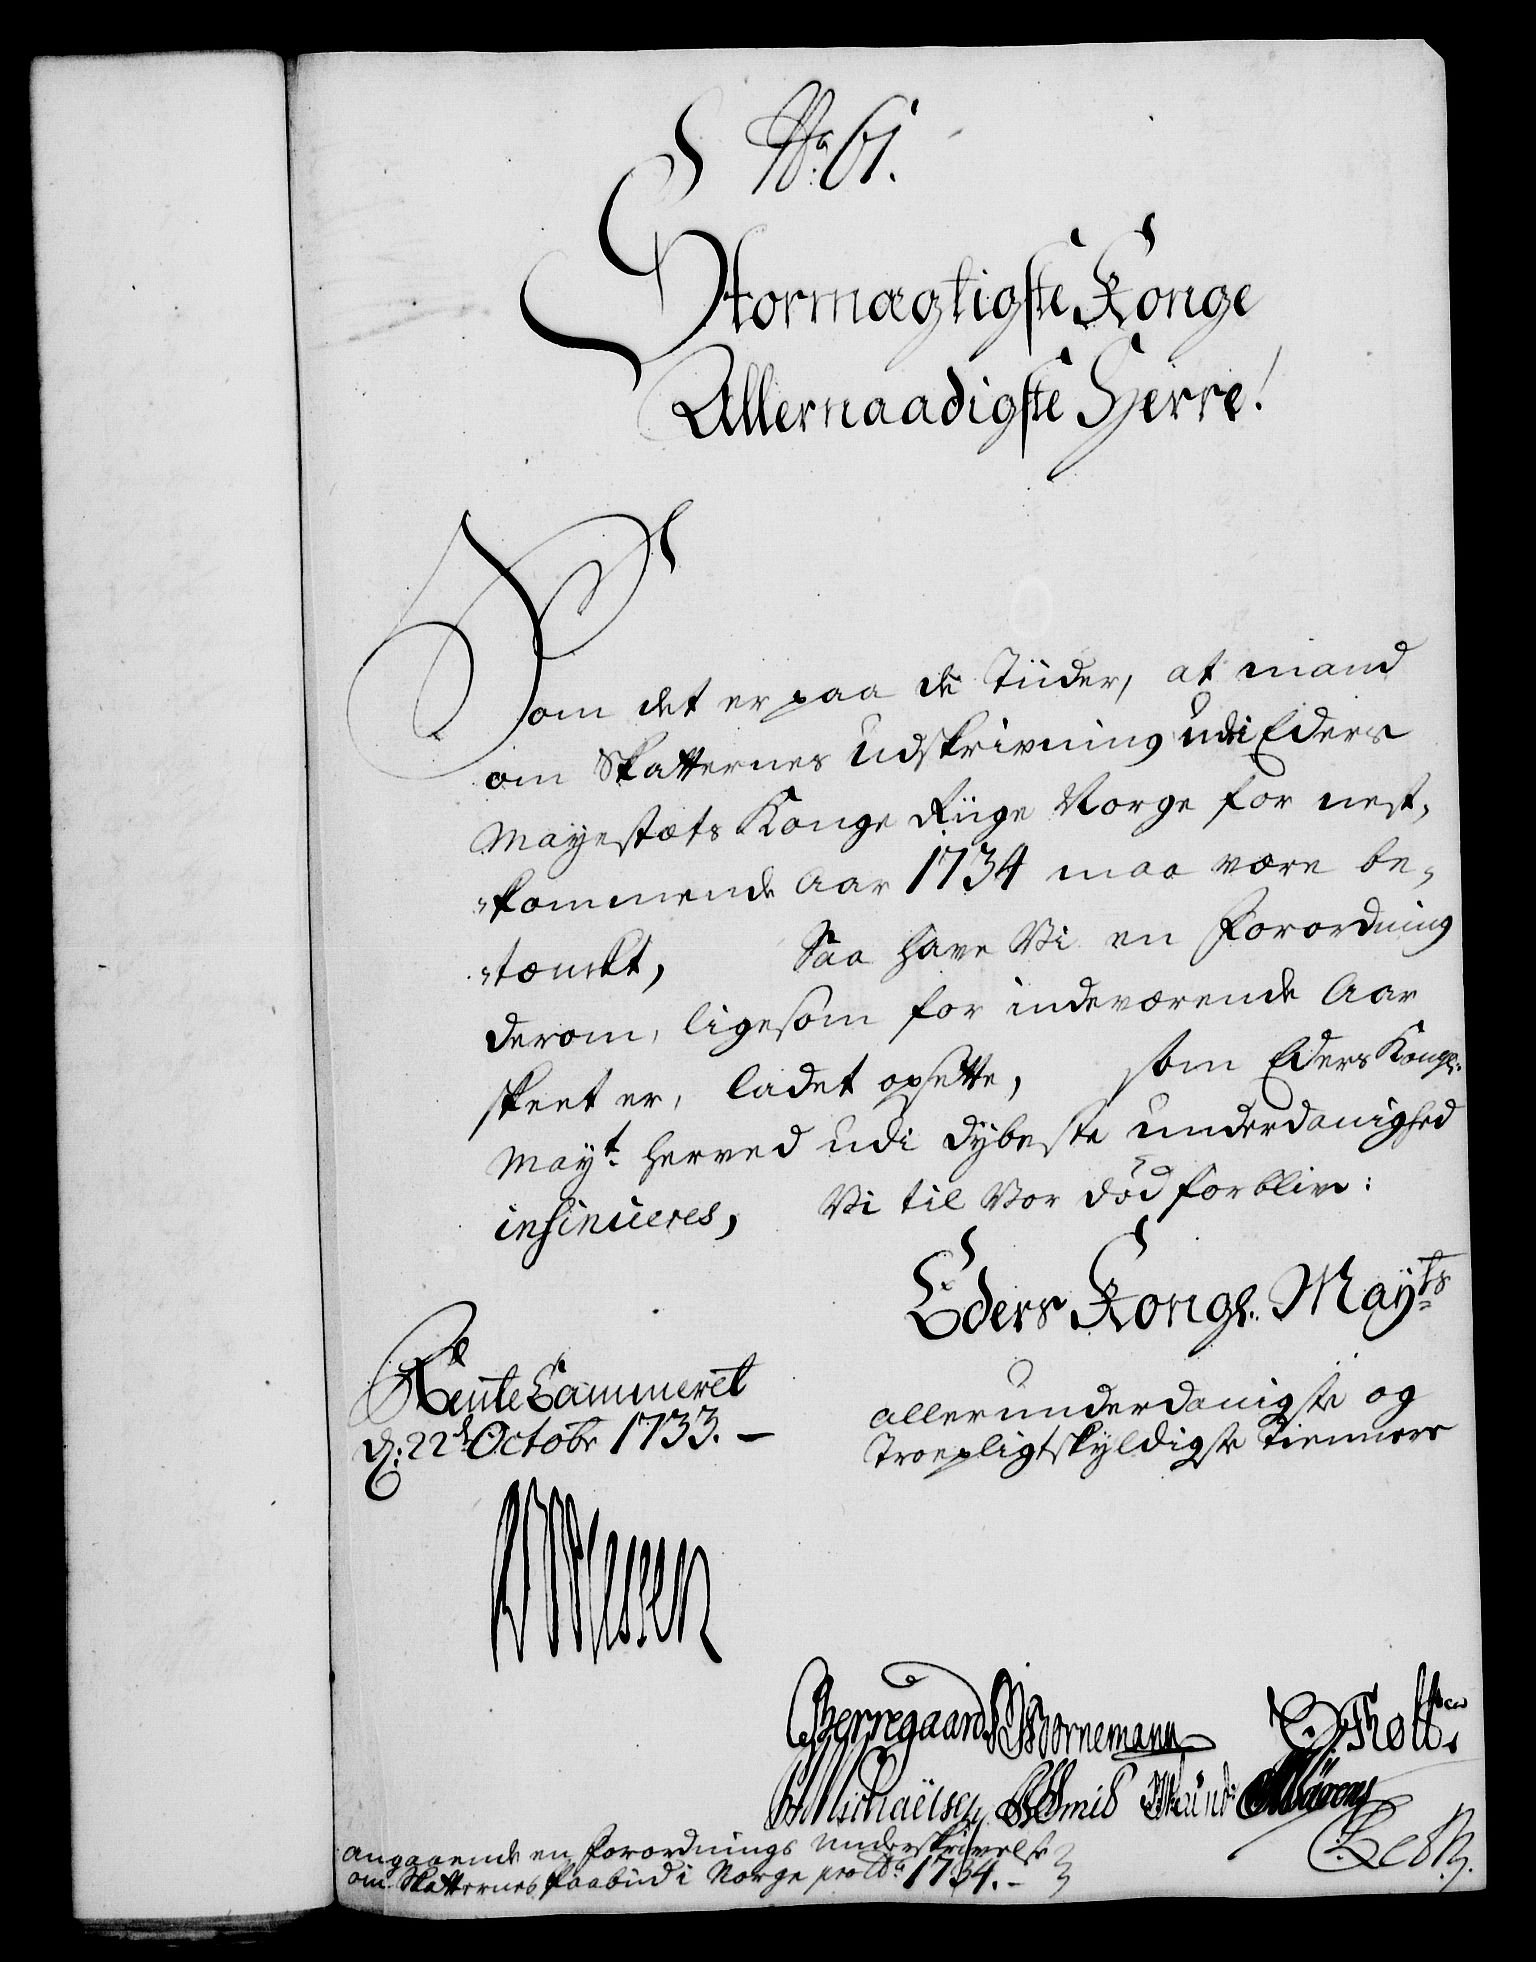 No 61.
Stormægtigste Konge
Allernaadigste Herre!
Som det er paa de Tiider, at mand
om Skatternes Udskrivning udi Eders
Mayestæts Konge Riige Norge for nest,
„kommende Aar 1734 maa være be„
„tænckt, Saa have Vi en Forordning
derom, ligesom for indeværende Aar
skeet er, ladet opsette, som Eders Kongl.
Mayt. herved udi dybeste underdanighed
insinueres, Vi til Vor død forblive:
Eders Kongl. Mayts
Rente Cammeret
d: 22d Octobr 1733. —
allerunderdanigste og
Troepligtskyldigste Tiennere
Berregaard Bornemann Tholt
angaaende en Forordnings underskrivelse
om Skatternes Paabud i Norge pro Ao 1734. –